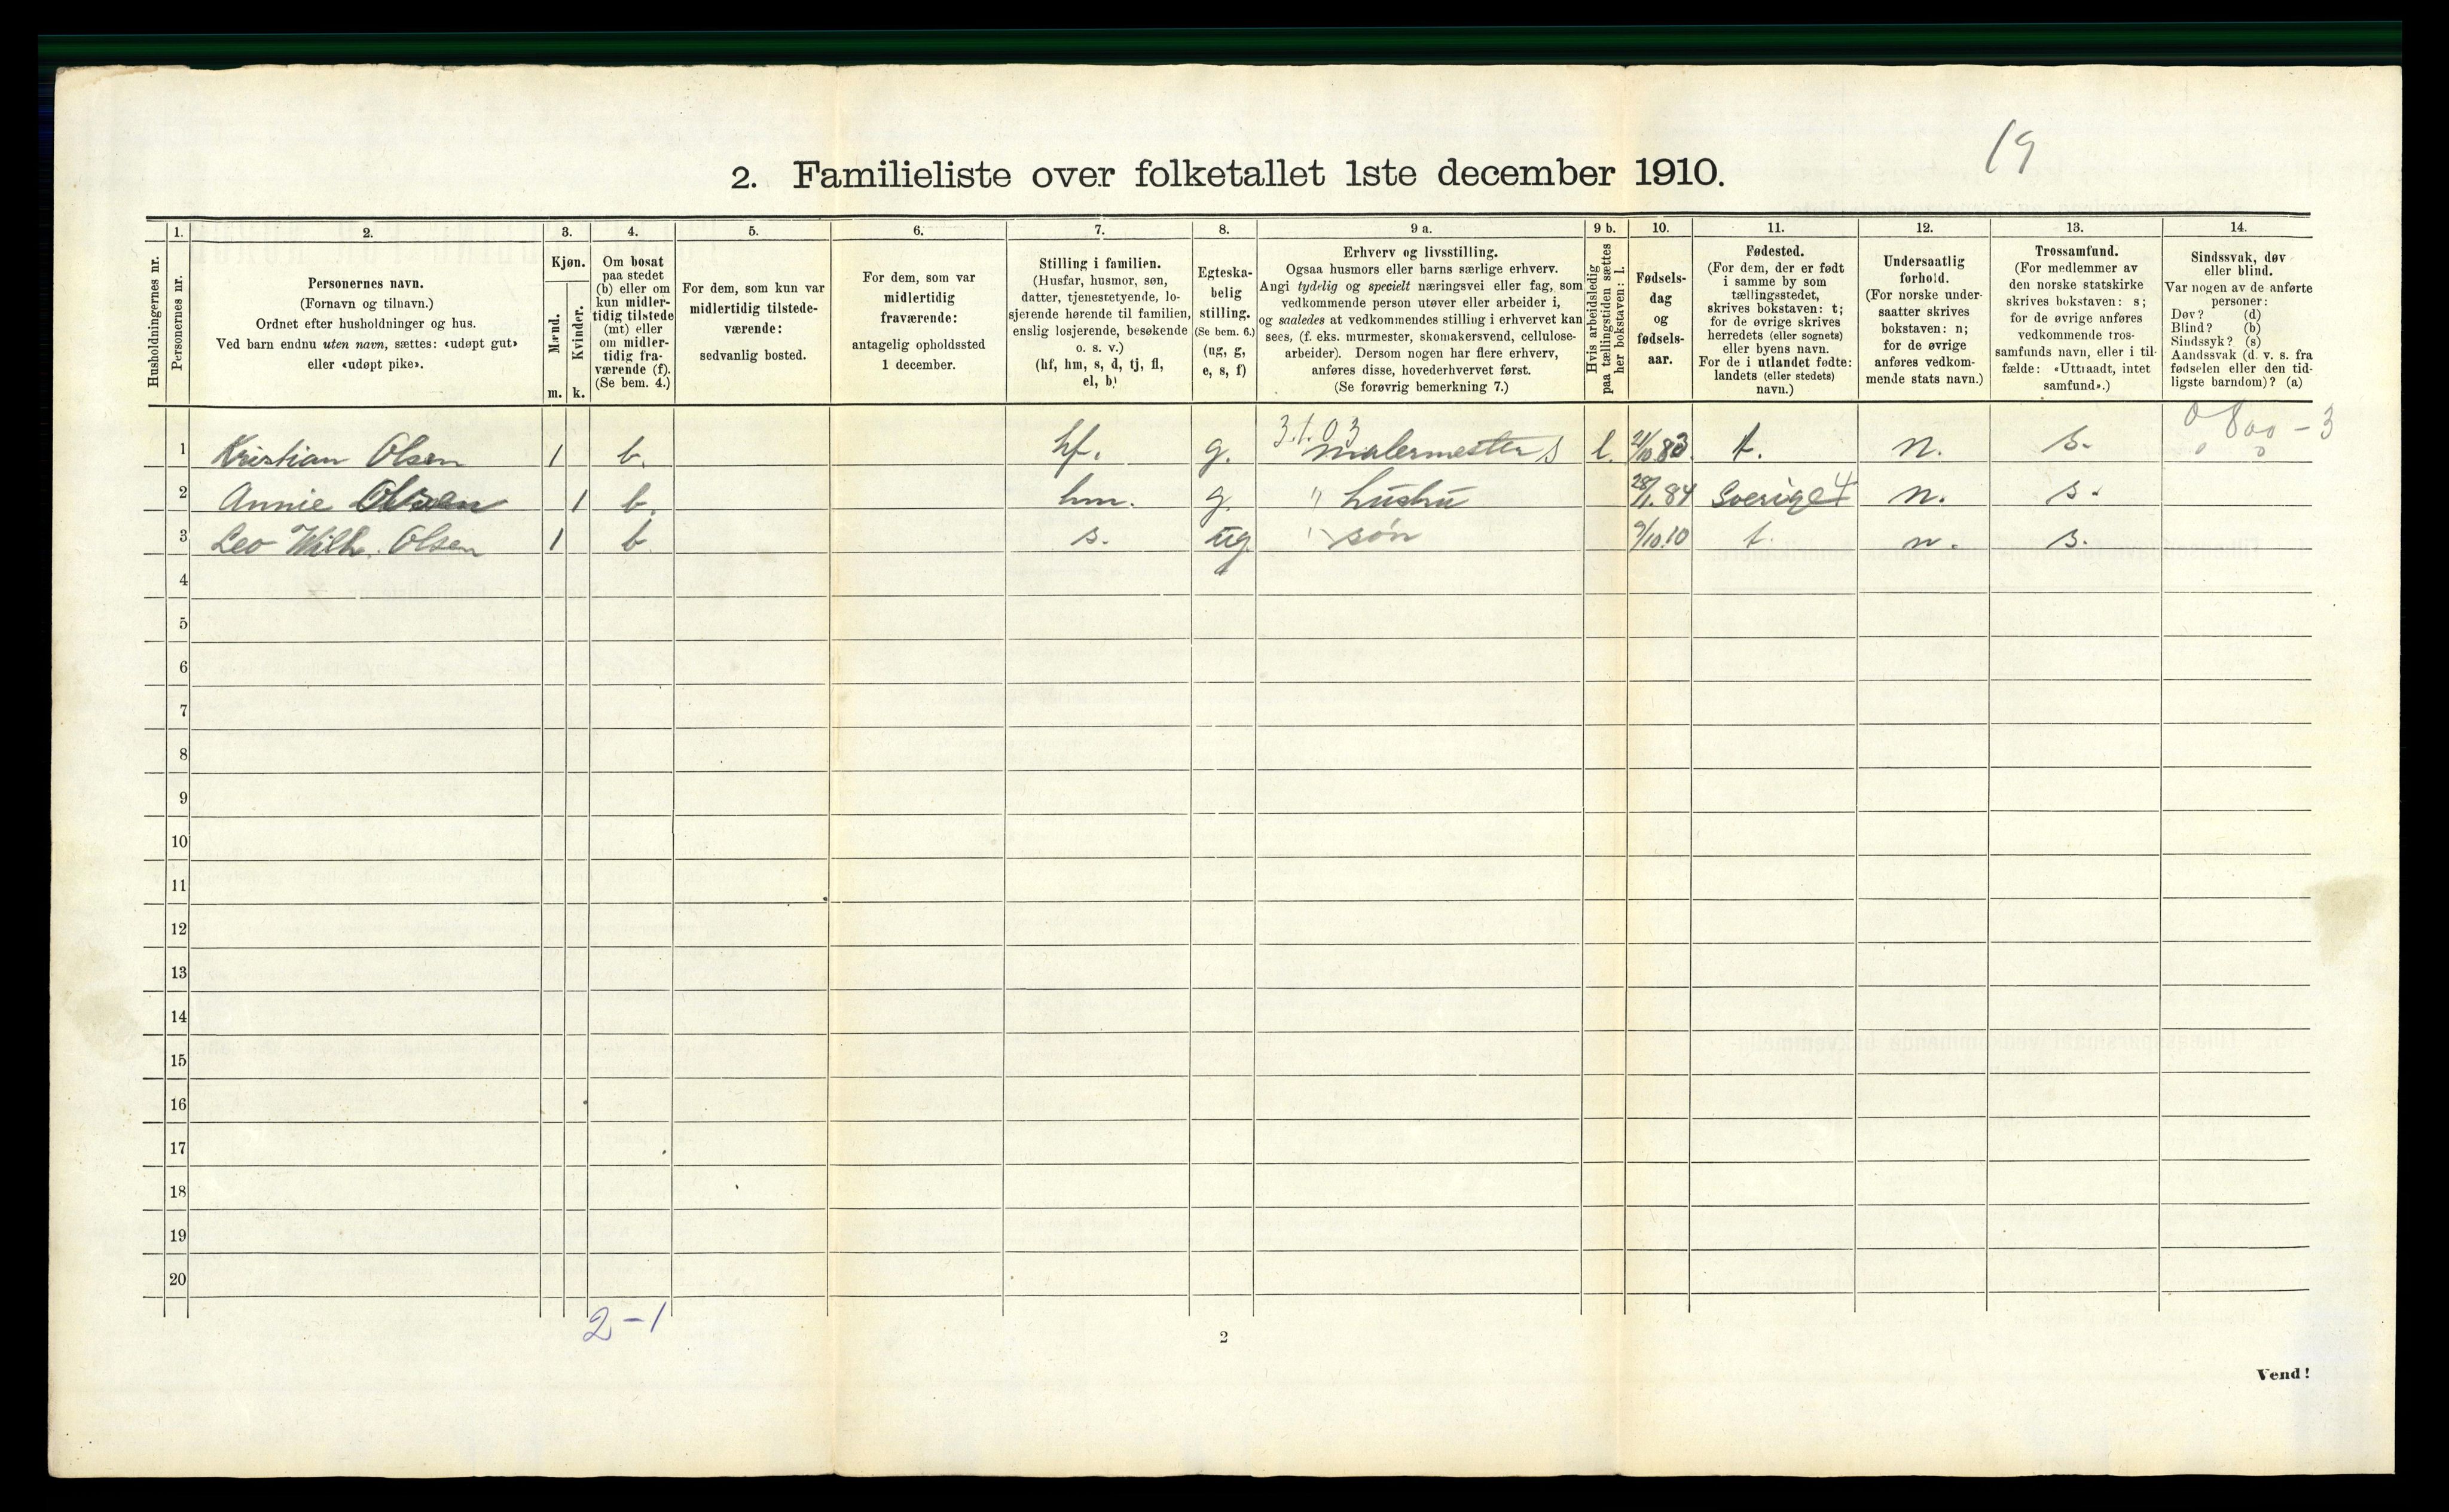 19
2. Familieliste over folketallet 1ste december 1910.
1. 2. 3. 4. 5. 6. 7. 8. 9 a. 9 b. 10. 11. 12. 13. 14.
Husholdningernes nr.
Personernes nr.
Personernes navn.
(Fornavn og tilnavn.)
Ordnet efter husholdninger og hus.
Ved barn endnu uten navn, sættes: «udøpt gut»
eller «udøpt pike».
Kjøn.
Mænd.
Kvinder.
m. k.
Om bosat
paa stedet
(b) eller om
kun midler-
tidig tilstede
(mt) eller
om midler-
tidig fra-
værende (f).
(Se bem. 4.)
For dem, som kun var
midlertidig tilstede-
værende:
sedvanlig bosted.
For dem, som var
midlertidig
fraværende:
antagelig opholdssted
1 december.
Stilling i familien.
(Husfar, husmor, søn,
datter, tjenestetyende, lo-
sjerende hørende til familien,
enslig losjerende, besøkende
o. s. v.)
(hf, hm, s, d, tj, fl,
el, b)
Egteska-
belig
stilling.
(Se bem. 6.)
(ug, g,
e, s, f)
Erhverv og livsstilling.
Ogsaa husmors eller barns særlige erhverv.
Angi tydelig og specielt næringsvei eller fag, som
vedkommende person utøver eller arbeider i,
og saaledes at vedkommendes stilling i erhvervet kan
sees, (f. eks. murmester, skomakersvend, cellulose-
arbeider). Dersom nogen har flere erhverv,
anføres disse, hovederhvervet først.
(Se forøvrig bemerkning 7.)
Hvis arbeidsledig
paa tællingstiden sættes
her bokstaven: l.
Fødsels-
dag
og
fødsels-
aar.
Fødested.
(For dem, der er født
i samme by som
tællingsstedet,
skrives bokstaven: t;
for de øvrige skrives
herredets (eller sognets)
eller byens navn.
For de i utlandet fødte:
landets (eller stedets)
navn.)
Undersaatlig
forhold.
(For norske under-
saatter skrives
bokstaven: n;
for de øvrige
anføres vedkom-
mende stats navn.)
Trossamfund.
(For medlemmer av
den norske statskirke
skrives bokstaven: s;
for de øvrige anføres
vedkommende tros-
samfunds navn, eller i til-
fælde: «Uttraadt, intet
samfund».)
Sindssvak, døv
eller blind.
Var nogen av de anførte
personer:
Døv? (d)
Blind? (b)
Sindssyk? (s)
Aandssvak (d. v. s. fra
fødselen eller den tid-
ligste barndom)? (a)
3.1.03
1 Kristian Olsen 1 b. hf. g. malermester s l. 21/10.83. t. n. s.
2 Annie Olsen 1 b. hm. g. " hustru 28/1.84 Sverige 4 n. s.
3 Leo Wilh. Olsen 1 b s. ug. " søn 9/10.10 t. n. s.
4
5
6
7
8
9
10
11
12
13
14
15
16
17
18
19
20
2-1
2
Vend!